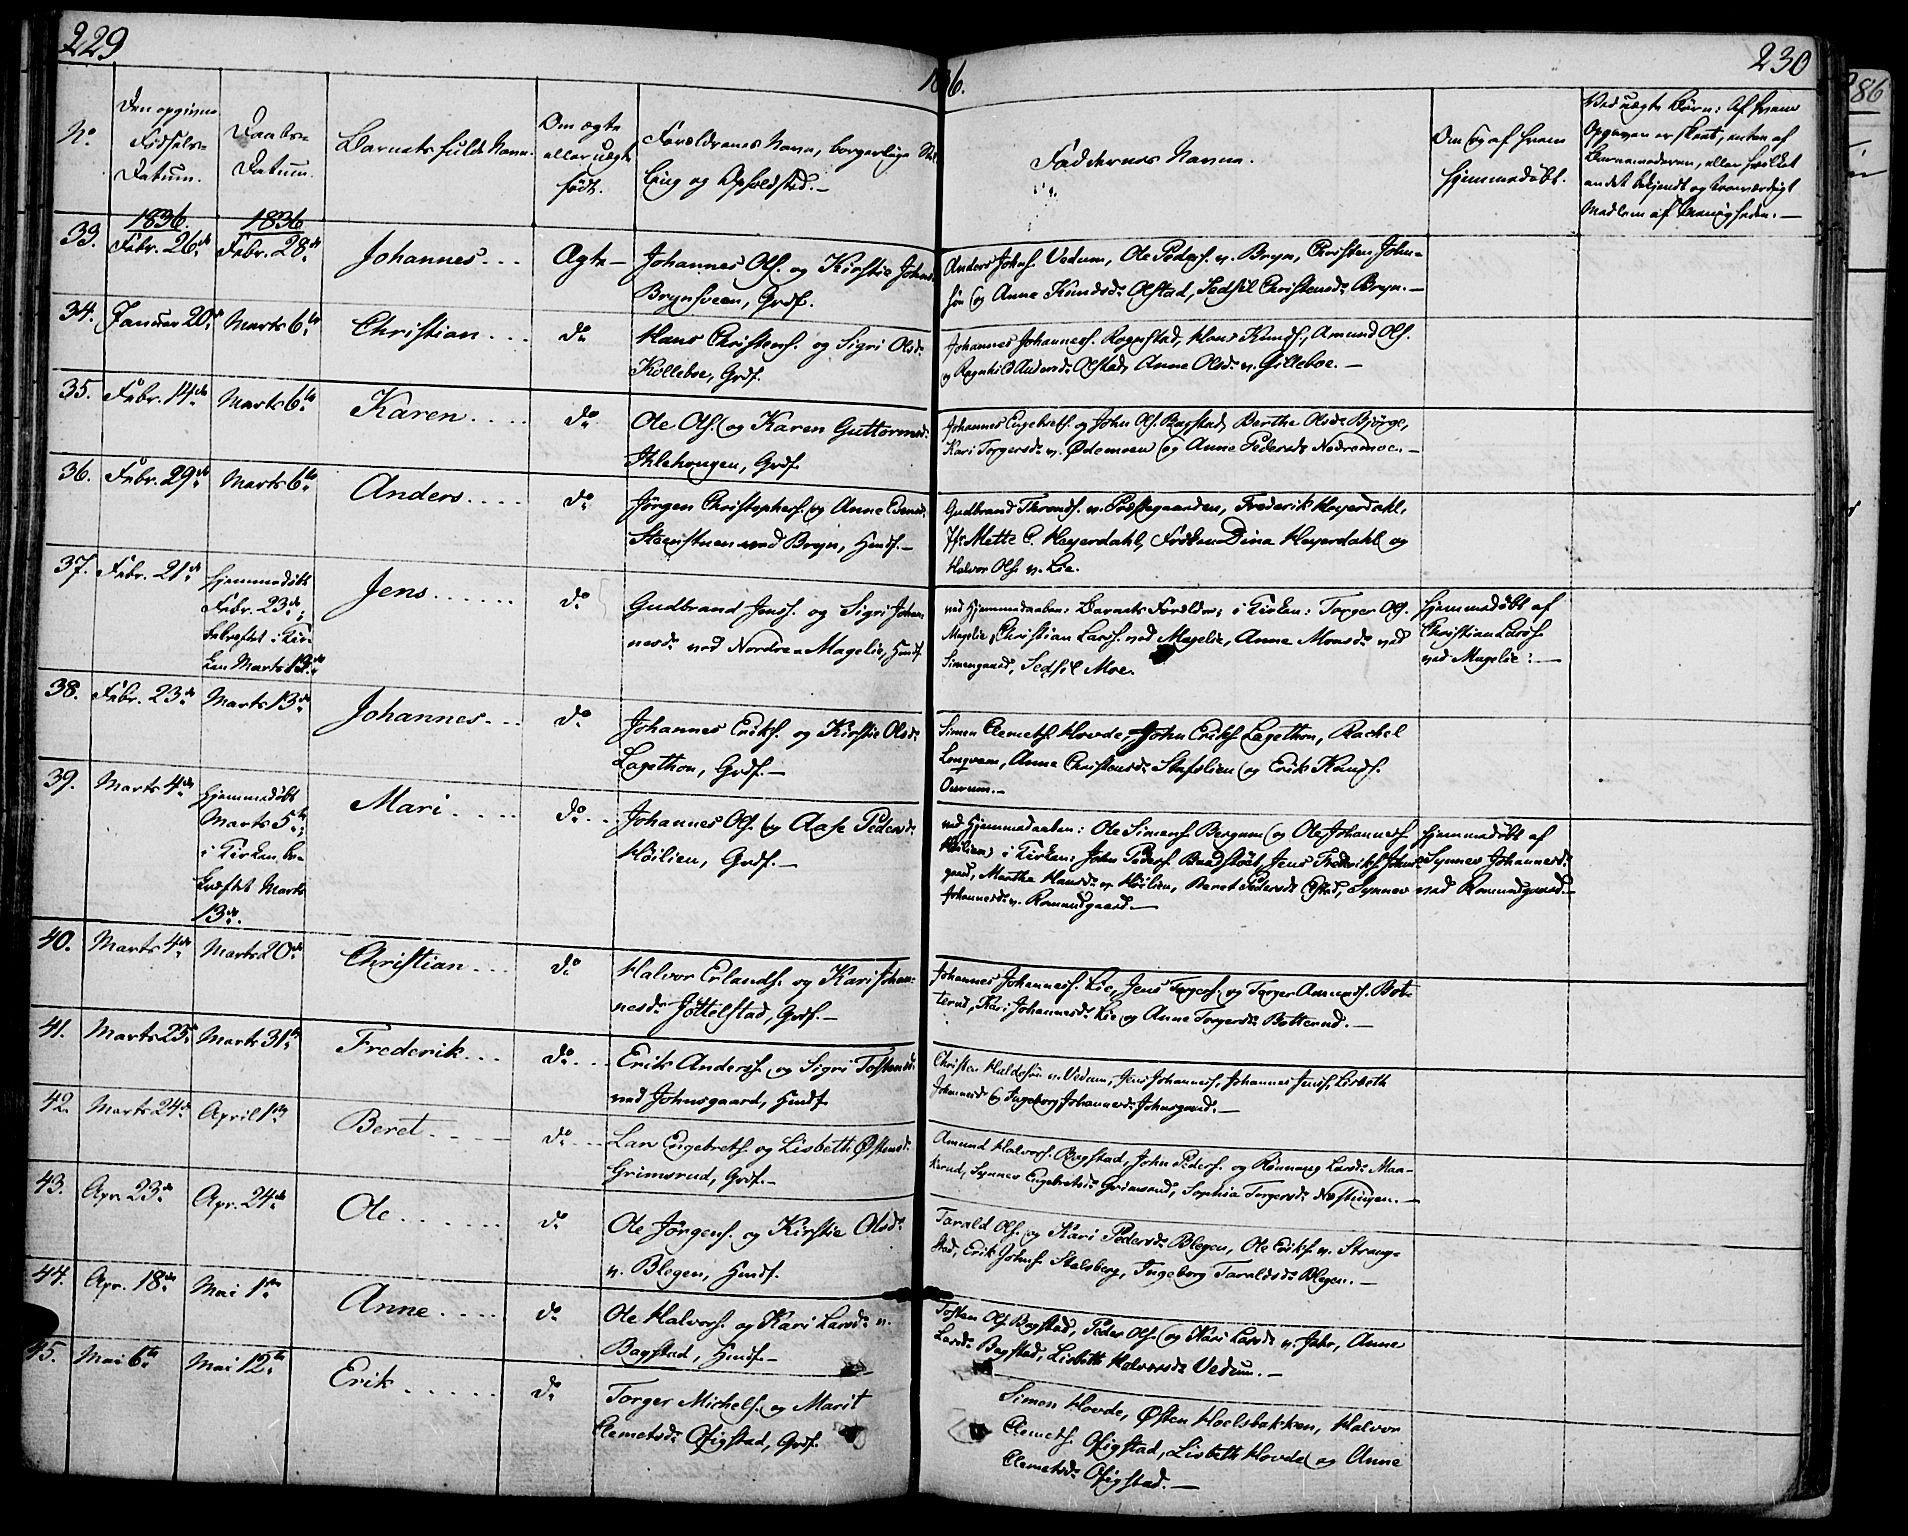 229
1836.
230
No.
Den opgivne
Fødsels-
Datum.
Daabs-
Datum.
Barnets fulde Navn.
Om ægte
eller uægte
født.
Forældrenes Navn, borgerlige Stil-
ling og Opholdsted.—
Faddernes Navne.
Om og af hvem
hjemmedøbt.
Ved uægte Børn: Af hvem
Opgaven er skeet, enten af
Barnemoderen, eller hvilket
andet bekjendt og troværdigt
Medlem af Menigheden.—
1836
1836
33.
Febr. 26de
Febr. 28de
Johannes...
Ægte—
Johannes Ols. og Kirstie Johns
Brynsveen, Grdf.
Anders Johns. Vedum, Ole Peders. v. Bryn, Christen John-
sen og Anne Knudsdr. Olstad, Sedsil Christensdr. Bryn.—
34.
Januar 20de
Marts 6te
Christian...
do
Hans Christens. og Sigri Olsdr.
Kolleboe, Grdf.
Johannes Johanness. Rognstad, Hans Knuds., Amund Ols.
og Ragnhild Andersdr. Olstad, Anne Olsdr. v. Gilleboe.—
35.
Febr. 14de
Marts 6te
Karen....
do
Ole Ols. og Karen Guttormsdr.
Ihlehougen, Grdf.
Johannes Engebrets. og John Ols. Bagstad, Berthe Olsdr. Bjørge,
Kari Torgersdr. v. Ødemoen og Anne Pedersdr. Nedremoe.—
36.
Febr. 29de
Marts 6te
Anders....
do
Jørgen Christophers. og Anne Evensdr.
ved Bryn, Huusf.—
Gudbrand Thronds. v. Præstegaarden, Frederik Heyerdahl,
Mette C. Heyerdahl, Frøken Dina Heyerdahl og
Halvor Ols. v. Lie.
37.
Febr. 21de
hjemmedøbt
Febr. 23de;
bekræftet i Kir-
ken Marts 13de
Jens......
do
Gudbrand Jenss. og Sigri Johan-
nesdr. ved Nordre Magelie, Huusf.
ved Hjemmedaaben: Barnets Forældre; i Kirken: Torger Ols.
Magelie, Christian Larss. ved Magelie, Anne Monsdr. ved
Simengaard, Sedsil Moe.
hjemmedøbt af
Christian Larss.
ved Magelie:—
38.
Febr. 23de
Marts 13de
Johannes...
do
Johannes Eriks. og Kirstie Olsdr.
Lagethon, Grdf.—
Simen Clemets. Hovde, John Eriks. Lagethon, Rachel
Longvem, Anne Christensdr. Stafslien og Erik Knuds.
Ourum.—
39.
Marts 4de
hjemmedøbt
Marts 5te;
i Kirken be-
kræftet Marts
13de
Mari....
do..
Johannes Ols. og Aase Pedersdr.
Høilien, Grdf.—
ved Hjemmedaaben: Ole Simens. Bergum og Ole Johanness.
Høilien; i Kirken: John Peders. Bredsløet, Jens Frederiks. Johns-
gaard, Marthe Hansdr. v. Høilien, Beret Pedersdr. Opstad, Synnev
Johannesdr. v. Romundgaard.—
hjemmedøbt af
Synnev Johannesdr.
ved Romundgaard.—
40.
Marts 4de
Marts 20de
Christian...
do
Halvor Erlands. og Kari Johan-
nesdr. Jøttelstad, Grdf.—
Johannes Johanness. Lie, Jens Torgers. og Torger Amunds. Bot-
terud, Kari Johannesdr. Lie og Anne Torgersdr. Botterud.—
41.
Marts 23de
Marts 31te
Frederik...
do...
Erik Anders. og Sigri Tostensdr.
ved Johnsgaard, Huusf.
Christen v. Vedum, Jens Johanness., Johannes Jenss., Lisbeth
Johannesdr. og Ingeborg Johannesdr. Johnsgaard.—
42.
Marts 24de
April 1ste
Beret....
do...
Lars Engebrets. og Lisbeth Østensdr.
Grimsrud, Grdf.—
Amund Halvors. Bagstad, John Peders. og Rønnaug Larsdr. Maa-
kerud, Synnev Engebretsdr. Grimsrud, Sophia Torgersdr. Næstingen.—
43.
Apr. 23de
Apr. 24de
Ole......
do
Ole Jørgens. og Kirstie Olsdr.
v. Blegen, Huusf.
Tarald Ols. og Kari Pedersdr. Blegen, Ole Eriks. v. Strang-
stad, Erik Johns. Stalsberg, Ingeborg Taraldsdr. Blegen.—
44.
Apr. 18de
Mai 1ste
Anne....
do
Ole Halvors. og Kari Larsdr. v.
Bagstad, Huusf.—
Tosten Ols. Bagstad, Peder Ols. og Kari Larsdr. v. Jahr, Anne
Larsdr. Bagstad, Lisbeth Halvorsdr. Vedum.—
45.
Mai 6te
Mai 12te
Erik.....
do
Torger Michels. og Marit
Clemetsdr. Ofigstad, Grdf.
Simen Hovde, Østen Hoelsbakken, Halvor
Clemets. Ofigstad, Lisbeth Hovde og Anne
Clemetsdr. Ofigstad.—